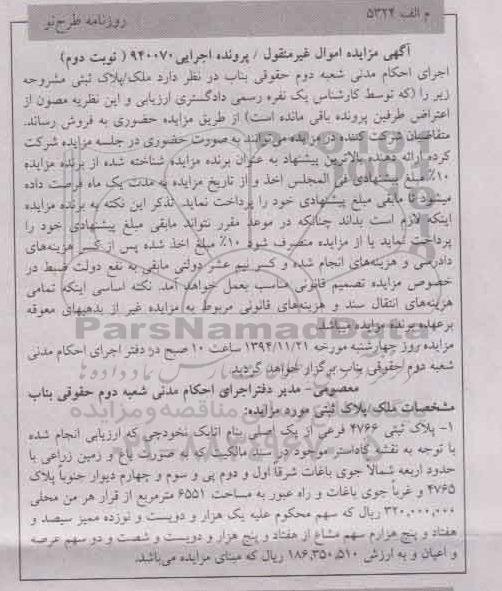 م الف ۵۳۲۴
روزنامه طرح نو
آگهی مزایده اموال غیرمنقول / پرونده اجرایی ۹۴۰۰۷۰ ( نوبت دوم)
اجرای احکام مدنی شعبه دوم حقوقی بناب در نظر دارد ملک/پلاک ثبتی مشروحه
زیر را (که توسط کارشناس یک نفره رسمی دادگستری ارزیابی و این نظریه مصون از
اعتراض طرفین پرونده باقی مانده است) از طریق مزایده حضوری به فروش رساند.
متقاضیان شرکت کننده در مزایده می‌توانند به صورت حضوری در جلسه مزایده شرکت
کرده ارائه دهنده بالاترین پیشنهاد به عنوان برنده مزایده شناخته شده از برنده مزایده
۱۰٪ مبلغ پیشنهادی فی المجلس اخذ و از تاریخ مزایده به مدت یک ماه فرصت داده
میشود تا مابقی مبلغ پیشنهادی خود را پرداخت نماید. تذکر این نکته به برنده مزایده
اینکه لازم است بداند چنانکه در موعد مقرر نتواند مابقی مبلغ پیشنهادی خود را
پرداخت نماید یا از مزایده منصرف شود ۱۰٪ مبلغ اخذ شده پس از کسر هزینه‌های
دادرسی و هزینه‌های انجام شده و کسر نیم عشر دولتی مابقی به نفع دولت ضبط در
خصوص مزایده تصمیم قانونی مناسب بعمل خواهد آمد. نکته اساسی اینکه تمامی
هزینه‌های انتقال سند و هزینه‌های قانونی مربوط به مزایده غیر از بدهیهای معوقه
برعهده برنده مزایده میباشد.
مزایده روز چهارشنبه مورخه ۱۳۹۴/۱۱/۲۱ ساعت ۱۰ صبح در دفتر اجرای احکام مدنی
شعبه دوم حقوقی بناب برگزار خواهد گردید.
معصومی- مدیر دفتر اجرای احکام مدنی شعبه دوم حقوقی بناب
مشخصات ملک/پلاک ثبتی مورد مزایده:
۱- پلاک ثبتی ۴۷۶۶ فرعی از یک اصلی بنام اتابک نخودچی که ارزیابی انجام شده
با توجه به نقشه کاداستر موجود در سند مالکیت که به صورت باغ و زمین زراعی با
حدود اربعه شمالاً جوی باغات شرقاً اول و دوم پی و سوم و چهارم دیوار جنوباً پلاک
۴۷۶۵ و غرباً جوی باغات و راه عبور به مساحت ۶۵۵۱ مترمربع از قرار هر من محلی
۳۲۰,۰۰۰,۰۰۰ ریال که سهم محکوم علیه یک هزار و دویست و نوزده ممیز سیصد و
هفتاد و پنج هزارم سهم مشاع از هفتاد و پنج هزار و دویست و شصت و دو سهم عرصه
و اعیان و به ارزش ۱۸۶,۳۵۰,۵۱۰ ریال که مبنای مزایده می‌باشد.
ParsNamadData